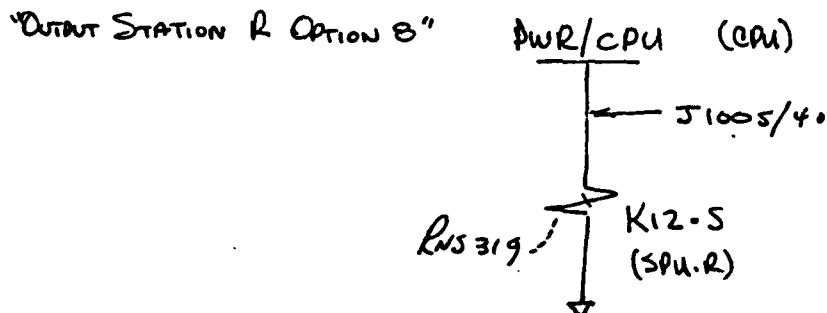 "OUTPUT STATION R OPTION 8"
PWR/CPU (CPU)
J1005/40
K12-S
RNS 319
(SPU.R)